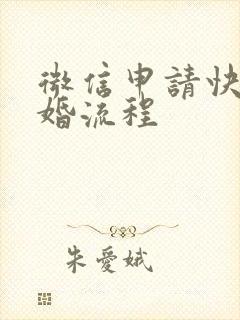 微信申請快
婚流程
朱愛娥